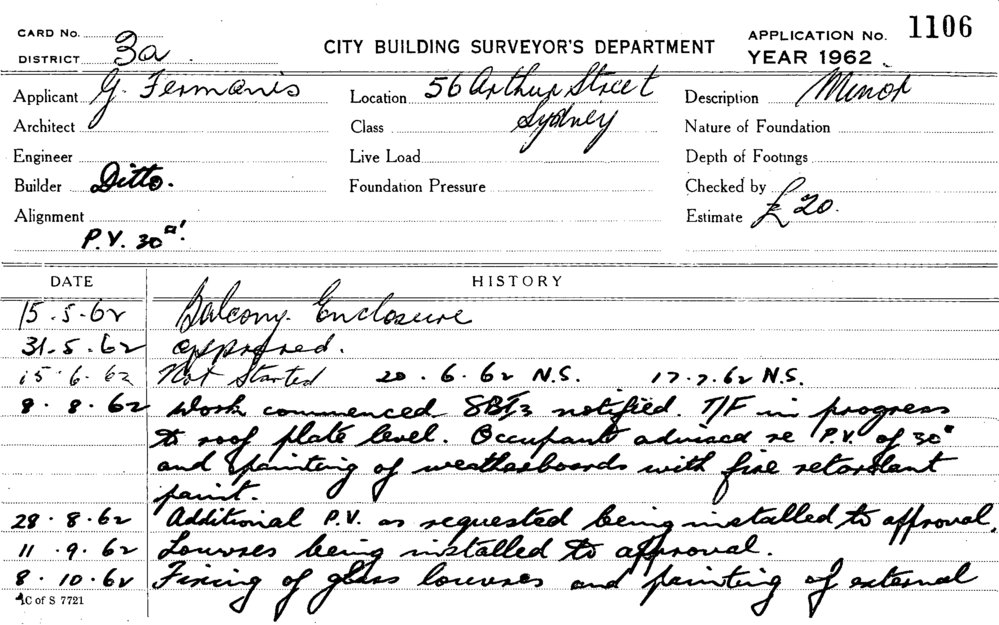 CARD No.
DISTRICT 3a
CITY BUILDING SURVEYOR'S DEPARTMENT
APPLICATION No. 1106
YEAR 1962
Applicant G. Fermanis
Location 56 Arthur Street
Sydney
Description Minor
Architect
Class
Nature of Foundation
Engineer
Live Load
Depth of Footings
Builder Ditto.
Foundation Pressure
Checked by
Alignment
Estimate £20.
P.V. 30
DATE HISTORY
15.5.62 Balcony Enclosure
31.5.62 approved.
15.6.62 Not Started 20.6.62 N.S. 17.7.62 N.S.
8.8.62 Work commenced notified. T/F in progress
to roof plate level. Occupant advised re P.V. of 30"
and painting of weatherboards with fire retardant
paint.
28.8.62 Additional P.V. as requested being installed to approval.
11.9.62 Louvres being installed to approval.
8.10.62 Fixing of glass louvres and painting of external
C of S 7721